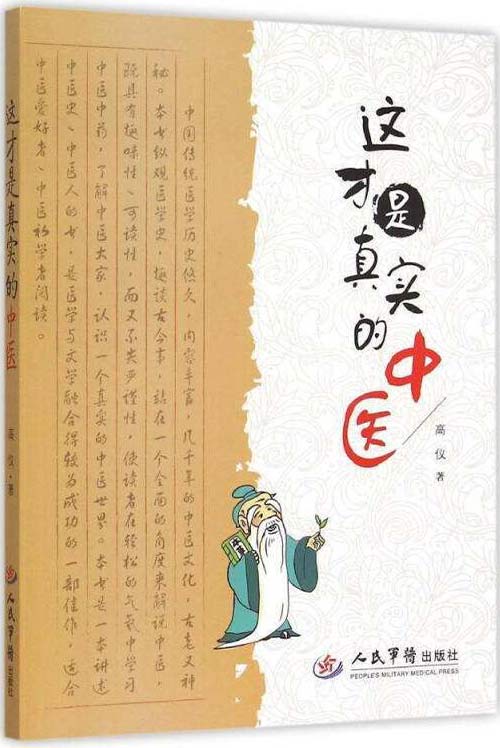 这才是真实的中医
高仪
著
中国传统医学历史悠久，内容丰富，几千年的中医文化，古老又神
秘。本书纵观医学史，趣读古今事，站在一个全面的角度来解说中医，
既具有趣味性、可读性，而又不失严谨性，使读者在轻松的气氛中学习
中医中药，了解中医大家，认识一个真实的中医世界。本书是一本讲述
中医史、中医人的书，是医学与文学融合得较为成功的一部佳作，适合
中医爱好者、中医初学者阅读。
人民军医出版社
PEOPLE'S MILITARY MEDICAL PRESS
这才是真实的中医
高仪·著
人民军医出版社